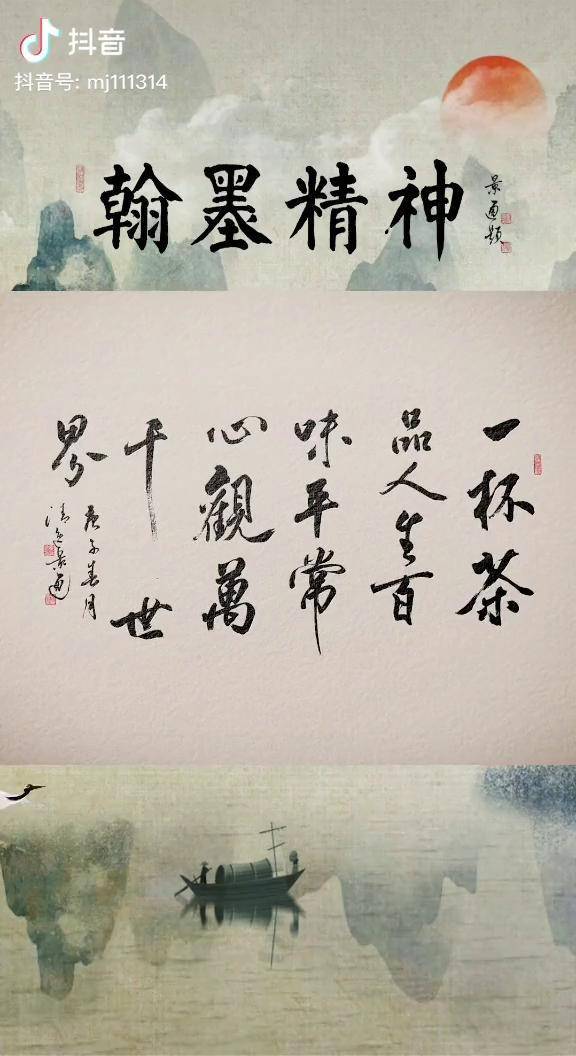 抖音
抖音号: mj111314
翰墨精神
景通题
一杯茶
品人生百
味平常
心觀萬
千世
界
庚子春月
景通